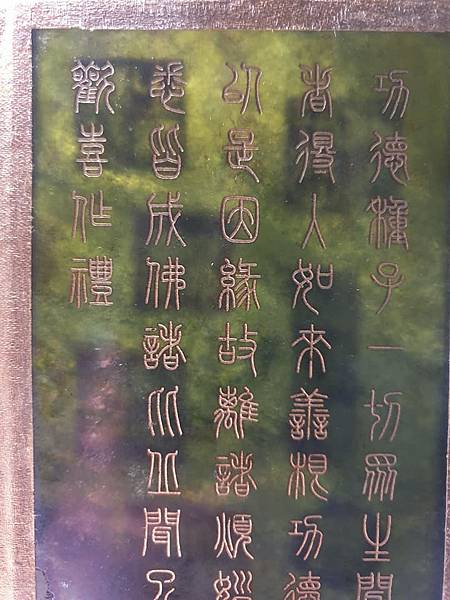 功德種子一切眾生聞
者得入如來善根功德
以是因緣故離諸煩惱
悉皆成佛諸比丘聞
歡喜作禮